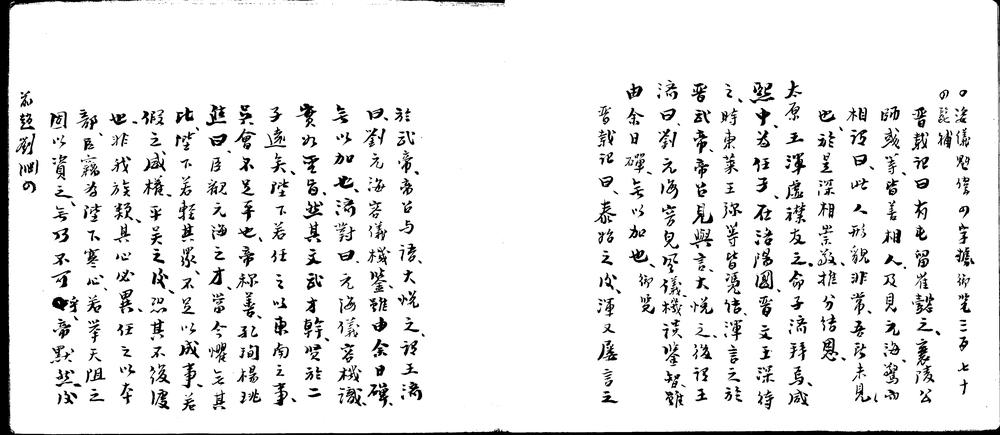 容儀魁偉の字據御覽三百七十
の髭補
晉載記曰有屯留崔懿之襄陵公
師彧等皆善相人及見元海驚而
相謂曰此人形貌非常吾所未見
也於是深相崇敬推分結恩
太原王渾虛襟友之命子濟拜焉咸
熙中為任子在洛陽國晉文王深待
之時東萊王彌等皆憑結渾言之於
晉武帝帝召見與言大悅之後謂王
濟曰劉元海容皃風儀機談鑒智雖
由余日磾無以加也御覽
晉載記曰泰始之後渾又屡言之
於武帝帝召与語大悅之謂王濟
曰劉元海容儀機鑒雖由余日磾
無以加也濟對曰元海儀容機識
實如聖旨然其文武才幹賢於二
子遠矣陛下若任之以東南之事
吳會不足平也帝称善孔恂楊珧
進曰臣觀元海之才當今懼無其
比陛下若輕其眾不足以成事若
假之威權平吳之後恐其不復渡
也非我族類其心必異任之以本
部臣竊為陛下寒心若舉天阻之
固以資之無乃不可乎帝默然後
前趙劉淵の